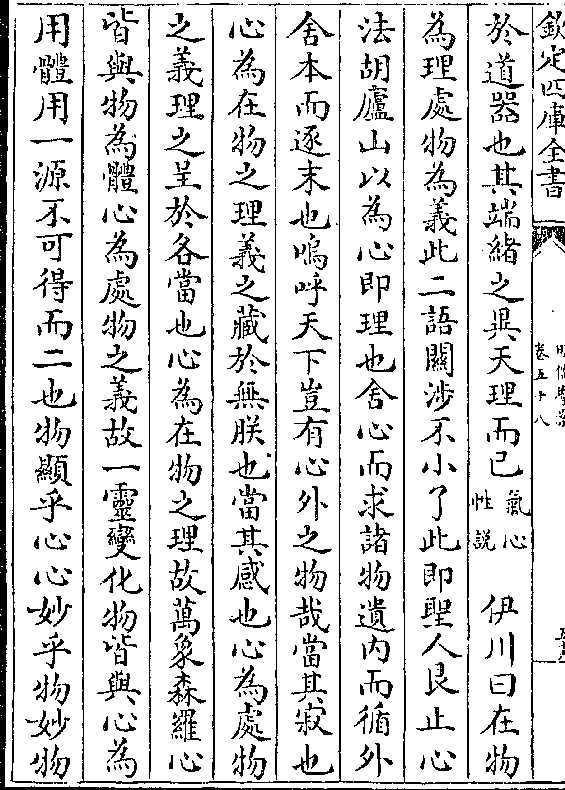 欽定四庫全書
明儒學案
卷五十八
於道器也其端緒之異天理而已氣心性說　伊川曰在物
為理處物為義此二語關涉不小了此即聖人艮止心
法胡廬山以為心即理也舍心而求諸物遺内而循外
舍本而逐末也嗚呼天下豈有心外之物哉當其寂也
心為在物之理義之藏於無朕也當其感也心為處物
之義理之呈於各當也心為在物之理故萬象森羅心
皆與物為體心為處物之義故一靈變化物皆與心為
用體用一源不可得而二也物顯乎心心妙乎物妙物